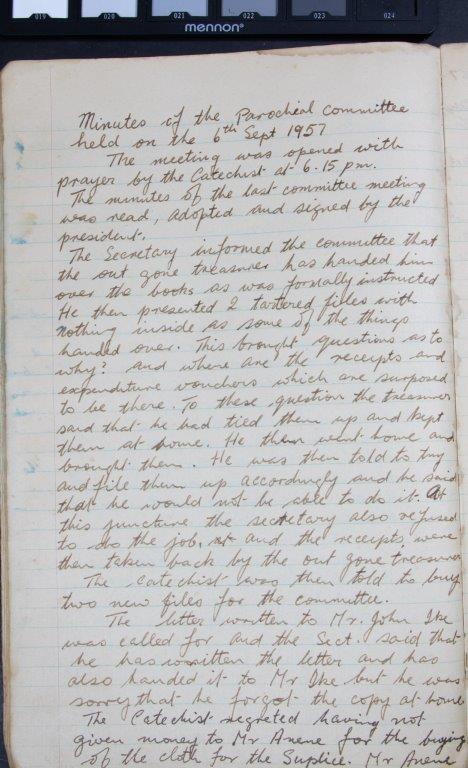 019 020 021 022 023 024
mennon®
Minutes of the Parochial Committee
held on the 6th Sept 1957
The meeting was opened with
prayer by the Catechist at 6.15 pm.
The minutes of the last committee meeting
was read, adopted and signed by the
president.
The Secretary informed the committee that
the out gone treasurer has handed him
over the books as was formally instructed
He then presented 2 tartered files with
nothing inside as some of the things
handed over. This brought questions as to
why? and where are the receipts and
expenditure vouchers which are surposed
to be there. To these question the treasurer
said that he had tied them up and kept
them at home. He then went home and
brought them. He was then told to try
and file them up accordingly and he said
that he would not be able to do it. At
this juncture the secretary also refused
to do the job, and the receipts were
then taken back by the out gone treasurer
The Catechist was then told to buy
two new files for the committee.
The letter written to Mr. John Ike
was called for and the Sect. said that
he has written the letter and has
also handed it to Mr Ike but he was
sorry that he forgot the copy at home
The Catechist regreted having not
given money to Mr Anene for the buying
of the cloth for the Suplice. Mr Anene